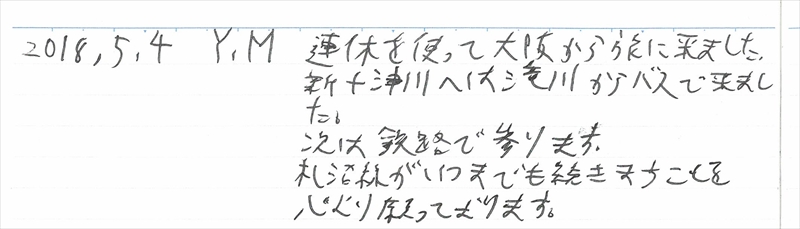 2018.5.4 Y.M 連休を使って大阪から旅に来ました.
新十津川へは滝川からバスで来まし
た。
次は鉄路で参ります.
札沼線がいつまでも続きますことを
心より願っております。